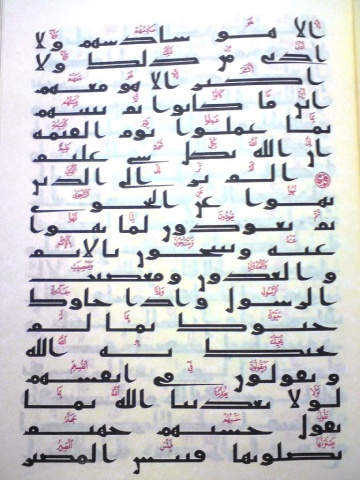 الا هو سادسهم ولا
ادنى من ذلك ولا
اكثر الا هو معهم
اين ما كانوا ثم ينبئهم
بما عملوا يوم القيمة
ان الله بكل شي عليم
الم تر الى الذين
نهوا عن النجوى
ثم يعودون لما نهوا
عنه ويتنجون بالاثم
والعدون ومعصيت
الرسول واذا جاوك
حيوك بما لم
يحيك به الله
ويقولون في انفسهم
لولا يعذبنا الله بما
نقول حسبهم جهنم
يصلونها فبئس المصير